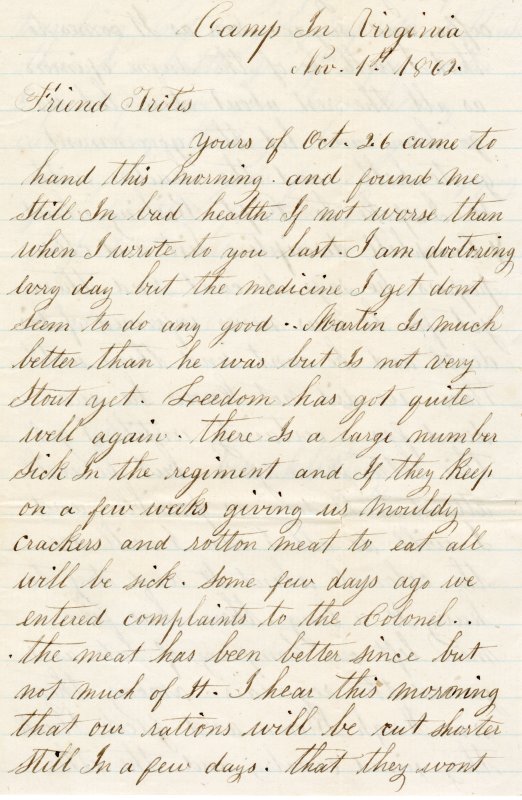 Camp In Virginia
Nov. 1st. 1862.
Friend Trites
Yours of Oct. 26 came to
hand this morning. and found me
still In bad health If not worse than
when I wrote to you last. I am doctoring
evry day but the medicine I get dont
seem to do any good.. Martin Is much
better than he was but Is not very
stout yet. Leedom has got quite
well again. there Is a large number
sick In the regiment and If they keep
on a few weeks giving us mouldy
crackers and rotton meat to eat all
will be sick. some few days ago we
entered complaints to the Colonel..
the meat has been better since but
not much of It. I hear this morning
that our rations will be cut shorter
still In a few days. that they wont